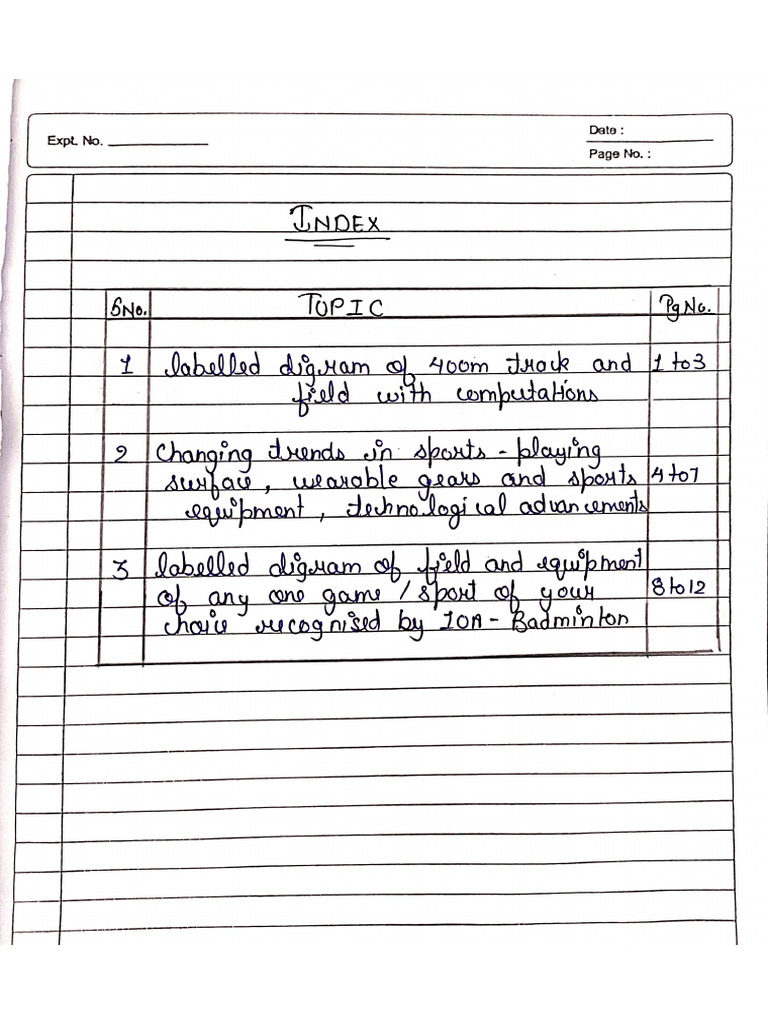 Expt. No.
Date :
Page No. :
INDEX
S No. TOPIC Pg No.
1 labelled digram of 400m track and 1 to 3
field with computations
2 Changing trends in sports - playing
surface, wearable gears and sports 4 to 7
equipment, technological advancements
3 labelled digram of field and equipment
of any one game / sport of your 8 to 12
choice recognised by IOA - Badminton